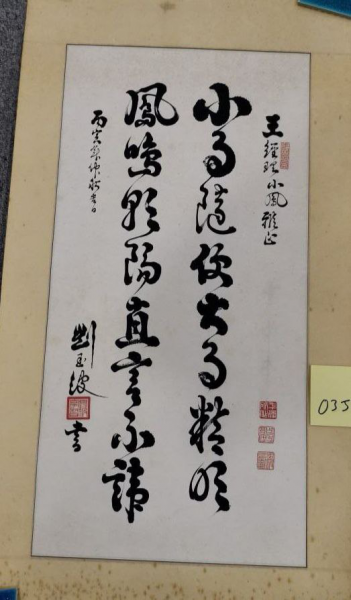 王經理小鳳雅正
小事隨便大事精明
鳳鳴朝陽直言不諱
丙寅仲秋
劉玉書
035